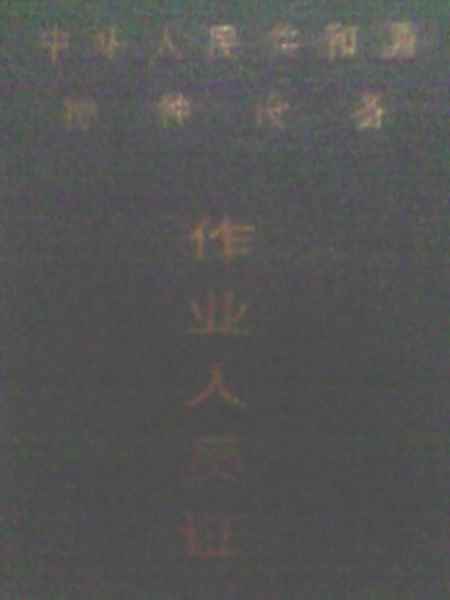 中华人民共和国
特种设备
作业人员证